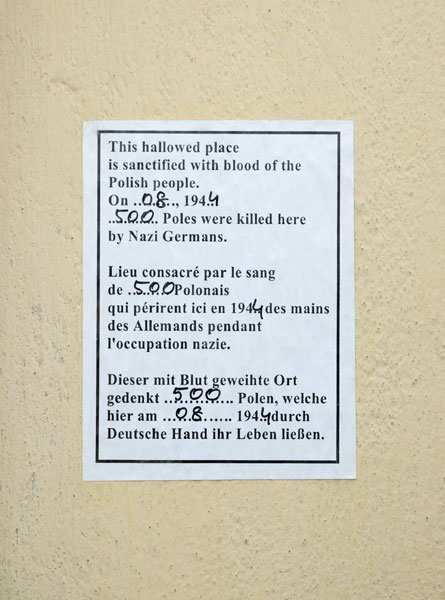 This hallowed place
is sanctified with blood of the
Polish people.
On ..08.., 1944
..500.. Poles were killed here
by Nazi Germans.
Lieu consacré par le sang
de ..500Polonais
qui périrent ici en 1944 des mains
des Allemands pendant
l'occupation nazie.
Dieser mit Blut geweihte Ort
gedenkt ..500.... Polen, welche
hier am ...08...... 1944 durch
Deutsche Hand ihr Leben ließen.